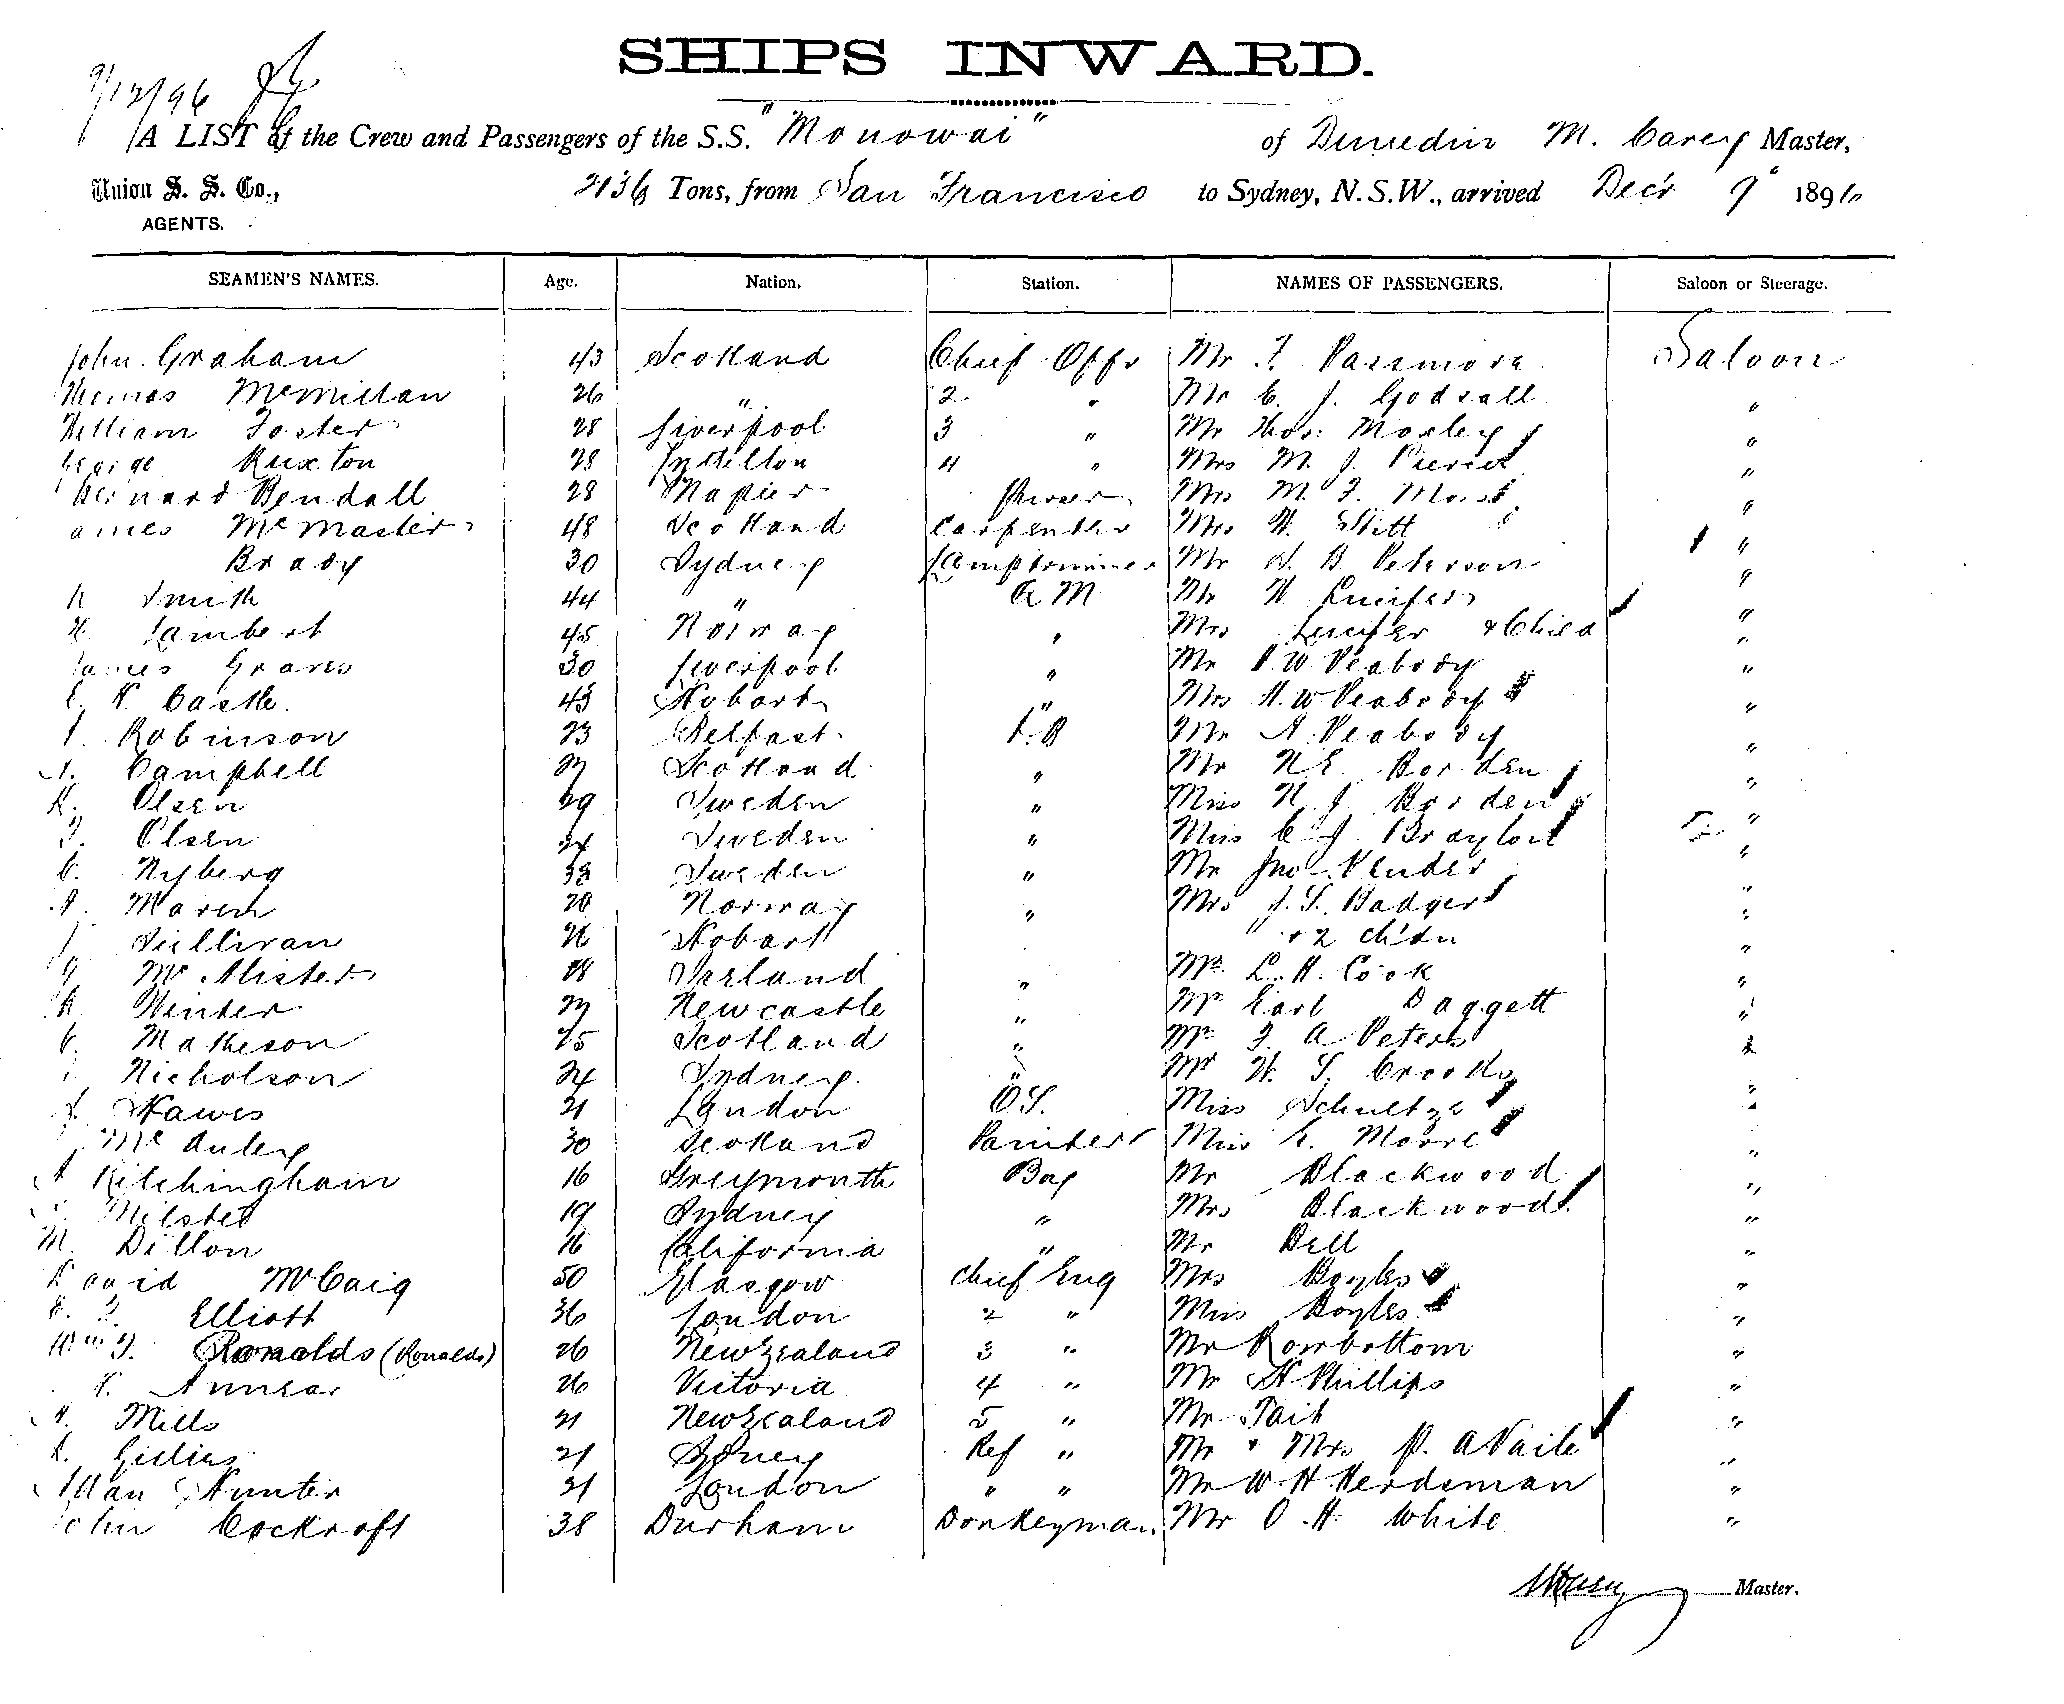 9/12/96
SHIPS INWARD.
A LIST of the Crew and Passengers of the S.S. "Monowai" of Dunedin M. Carey Master,
Union S. S. Co., AGENTS. 2136 Tons, from San Francisco to Sydney, N.S.W., arrived Decr 9" 1896
SEAMEN'S NAMES. Age. Nation. Station. NAMES OF PASSENGERS. Saloon or Steerage.
John Graham 43 Scotland Chief Offr Mr F. Passmore Saloon
Thomas McMillan 26 " 2 " Mr C. J. Godsall "
William Foster 28 Liverpool 3 " Mr Thos. Morley "
George Ruxton 28 4 " Mrs M. J. Pierce "
Bernard Bendall 28 Napier Purser Mrs M. F. Moss "
James McMaster 48 Scotland Carpenter Mrs H. Stitt "
Brady 30 Sydney Lamptrimmer Mr B Peterson "
Smith 44 " A M Mr H Lucifer "
H. Lambert 45 Norway " Mrs Lucifer & Child "
James Graves 30 Liverpool " Mr H W Peabody "
Castle 43 Hobart " Mrs H. W Peabody "
Robinson 23 Belfast F.B Mr A Peabody "
A. Campbell 27 Scotland " Mr N E. Borden "
K. Olsen 29 Sweden " Miss N J Borden "
F. Olsen 24 Sweden " Miss C J Brayton "
C. Nyberg 38 Sweden " Mr Jno Pender "
A. Maren 20 Norway " Mrs J. S. Badger "
J. Sullivan 26 Hobart & 2 ch'dn "
G McAlister 18 Ireland " Mr L. H. Cook "
R. Winter 27 Newcastle " Mr Earl Daggett "
C. Matheson 25 Scotland " Mr F A Peters "
Nicholson 24 Sydney " Mr H. S. Crooks "
J. Hawes 21 London O.S. Miss Schultze "
McAuley 30 Scotland Painter Miss E. Moore "
A Kitchingham 16 Greymouth Boy Mr Blackwood "
Milsted 19 Sydney " Mrs Blackwood "
M. Dillon 16 California " Mr Bell "
David McCaig 50 Glasgow Chief Eng Mrs Boyles "
F. Elliott 36 London 2 " Miss Boyles "
Wm G. Ronalds (Ronalds) 26 New Zealand 3 " Mr Rowbottom "
Annear 26 Victoria 4 " Mr H Phillips "
A. Mills 21 New Zealand 5 " Mr Tait "
R. Gillies 21 Sydney Ref " Mr & Mrs P. A Vaile "
Allan Hunter 21 London " " Mr W H Herdsman "
John Cockroft 38 Durham Donkeyman Mr O. H. White "
MCarey Master.